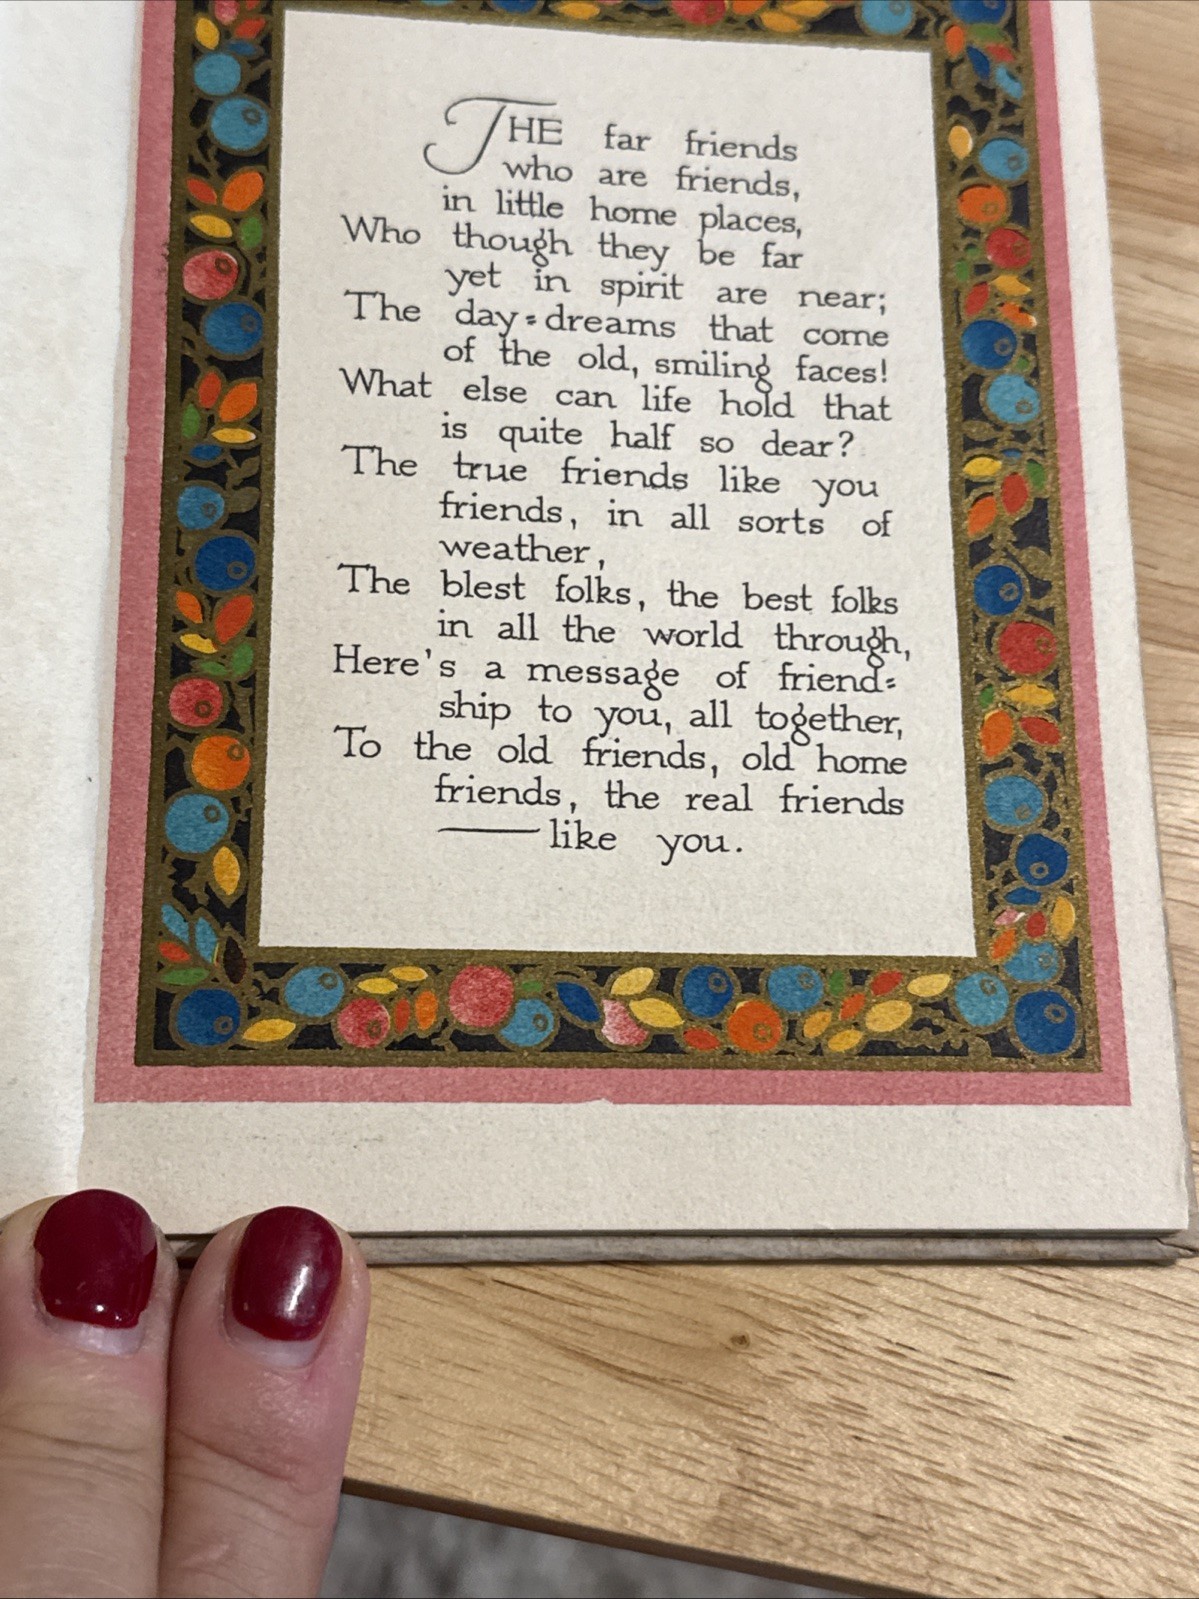 THE far friends
who are friends,
in little home places,
Who though they be far
yet in spirit are near;
The day-dreams that come
of the old, smiling faces!
What else can life hold that
is quite half so dear?
The true friends like you
friends, in all sorts of
weather,
The blest folks, the best folks
in all the world through,
Here's a message of friend-
ship to you, all together,
To the old friends, old home
friends, the real friends
—like you.